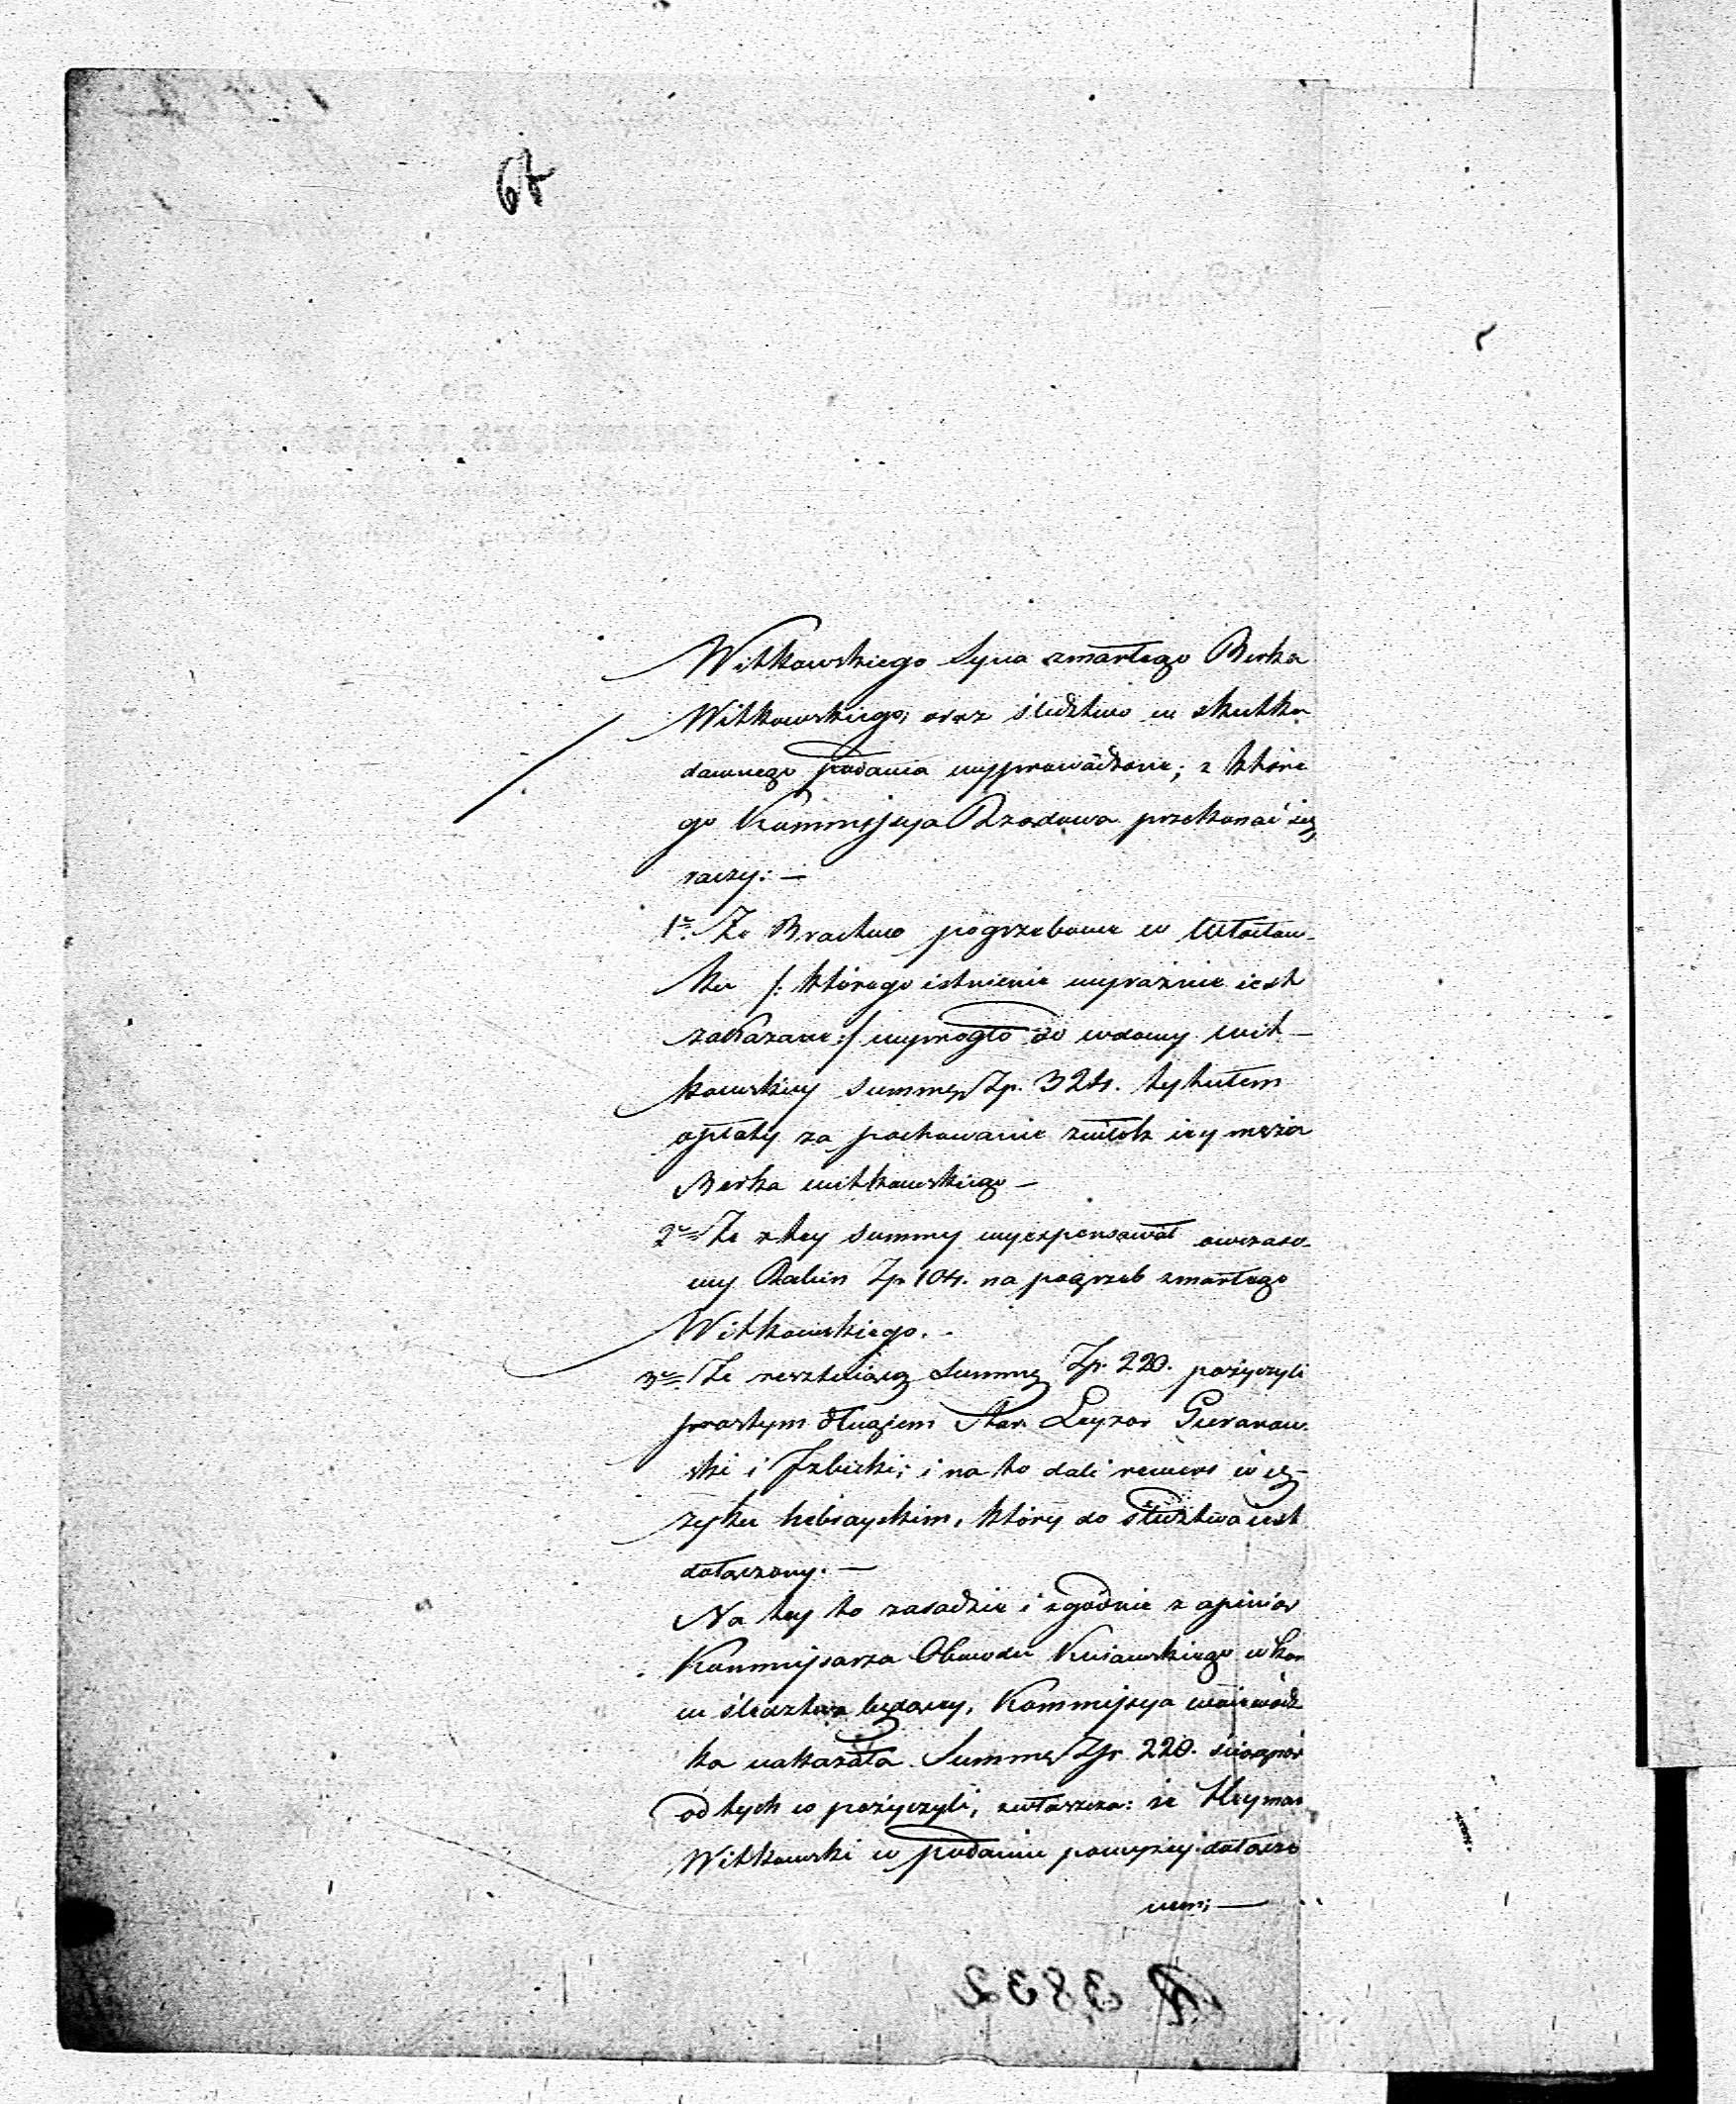 67
Witkowskiego Syna zmarłego Berka
Witkowskiego; oraz śledztwo w skutku
dawnego podania wyprowadzone; z które
go Kommissya Rządowa przekonać się
raczy: —
1e. Że Bractwo pogrzebowe w Włocław-
ku /: którego istnienie wyraźnie iest
zakazane :/ wymogło od wdowy Wit-
kowskiey summę Zp. 324. tytułem
opłaty za pochowanie zwłok iey męża
Berka Witkowskiego —
2e Że z tey summy wyexpensował owczaso-
wy Rabin Zp 104. na pogrzeb zmarłego
Witkowskiego. -
3e. Że resztuiącą Summę Zp. 220. pożyczyli
prostym długiem Leyzor
ski i Izbicki; i na to dali rewers w ię-
zyku hebrayskim, który do śledztwa iest
dołączony. —
Na tey to zasadzie i zgodnie z opinią
Kommissarza Obwodu Kuiawskiego w koń
cu śledztwa będącey, Kommissya Woiewódz
ka nakazała Summę Zp. 220. ściągnąć
od tych co pożyczyli, zwłaszcza: że Heyman
Witkowski w podaniu powyżey dołączo
nem; —
3832